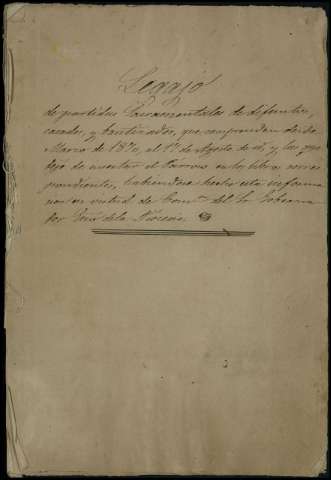 Legajo
de partidas Sacramentales de difuntos,
casados, y bautizados, que comprenden desde
Marzo de 1870, al 1º de Agosto de id, y las que
dejo de asentar el Parroco en los libros corres
pondientes, habiendose hecho esta informa
cion en virtud de Comⁿ del Sr Goberna
dor de la Diocesis